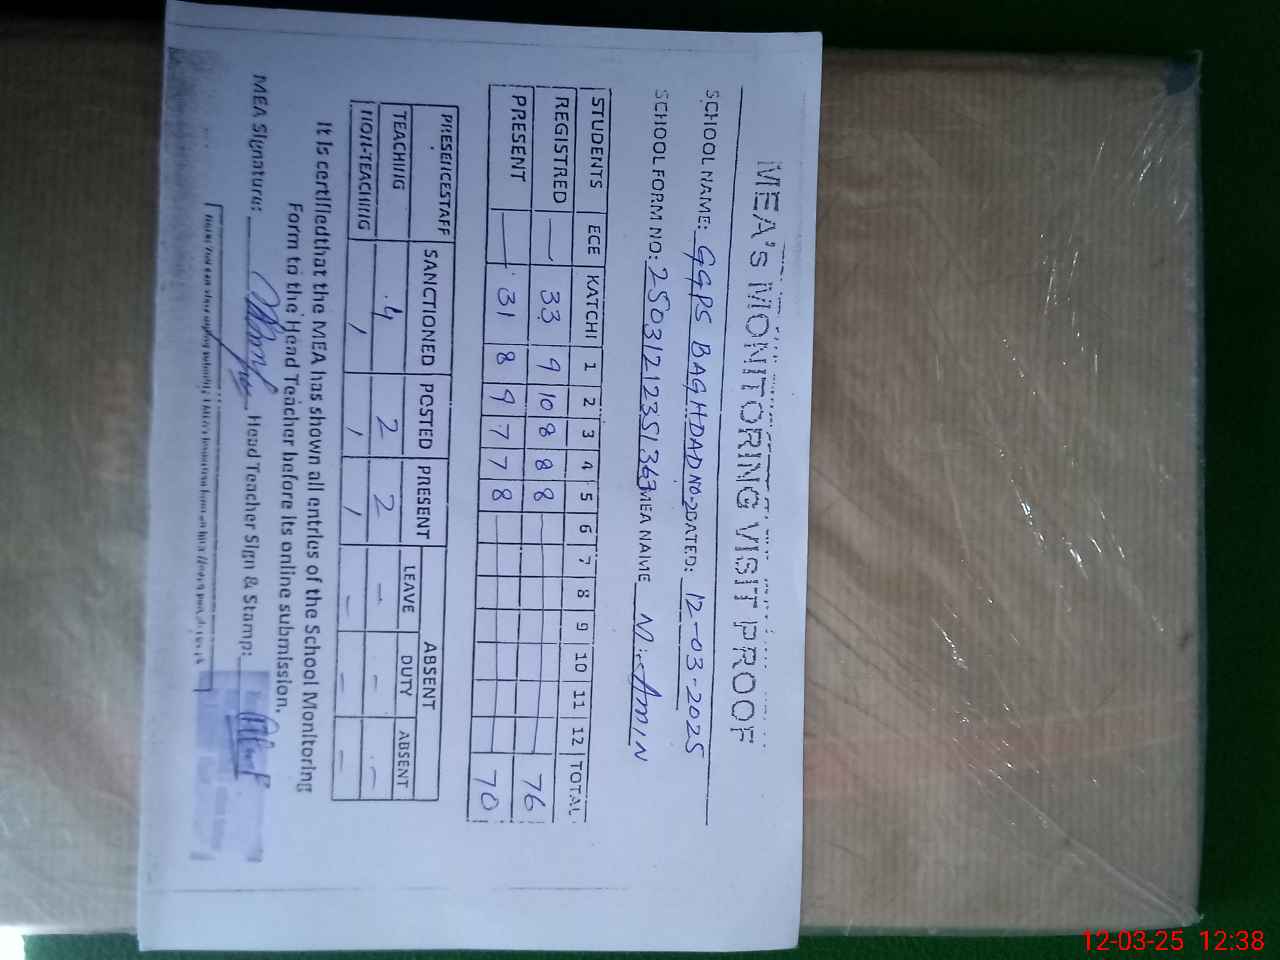 MEA's MONITORING VISIT PROOF
SCHOOL NAME: GGPS BAGHDAD NO-2 DATED: 12-03-2025
SCHOOL FORM NO: 25031212351363 MEA NAME M. AMIN
STUDENTS ECE KATCHI 1 2 3 4 5 6 7 8 9 10 11 12 TOTAL
REGISTRED — 33 9 10 8 8 8 76
PRESENT — 31 8 9 7 7 8 70
PRESENCESTAFF SANCTIONED POSTED PRESENT ABSENT
LEAVE DUTY ABSENT
TEACHING 4 2 2 – – –
NON-TEACHING / / / – – –
It is certifiedthat the MEA has shown all entries of the School Monitoring
Form to the Head Teacher before its online submission.
MEA Signature: Head Teacher Sign & Stamp:
12-03-25 12:38